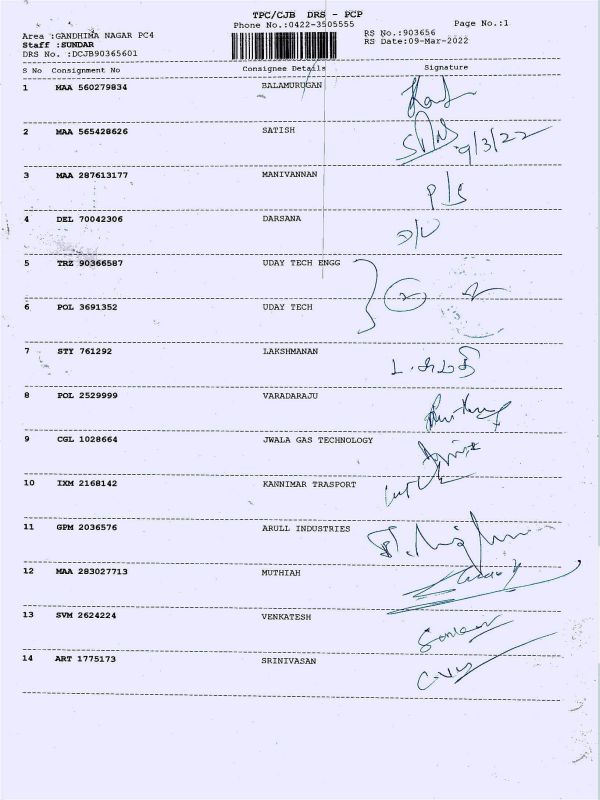 TPC/CJB DRS - PCP
Phone No.:0422-3505555 Page No.:1
Area :GANDHIMA NAGAR PC4 RS No.:903656
Staff :SUNDAR RS Date:09-Mar-2022
DRS No. :DCJB90365601
S No Consignment No Consignee Details Signature
1 MAA 560279834 BALAMURUGAN
2 MAA 565428626 SATISH 9/3/22
3 MAA 287613177 MANIVANNAN
4 DEL 70042306 DARSANA
5 TRZ 90366587 UDAY TECH ENGG
6 POL 3691352 UDAY TECH
7 STY 761292 LAKSHMANAN
8 POL 2529999 VARADARAJU
9 CGL 1028664 JWALA GAS TECHNOLOGY
10 IXM 2168142 KANNIMAR TRASPORT
11 GPM 2036576 ARULL INDUSTRIES
12 MAA 283027713 MUTHIAH
13 SVM 2624224 VENKATESH
14 ART 1775173 SRINIVASAN